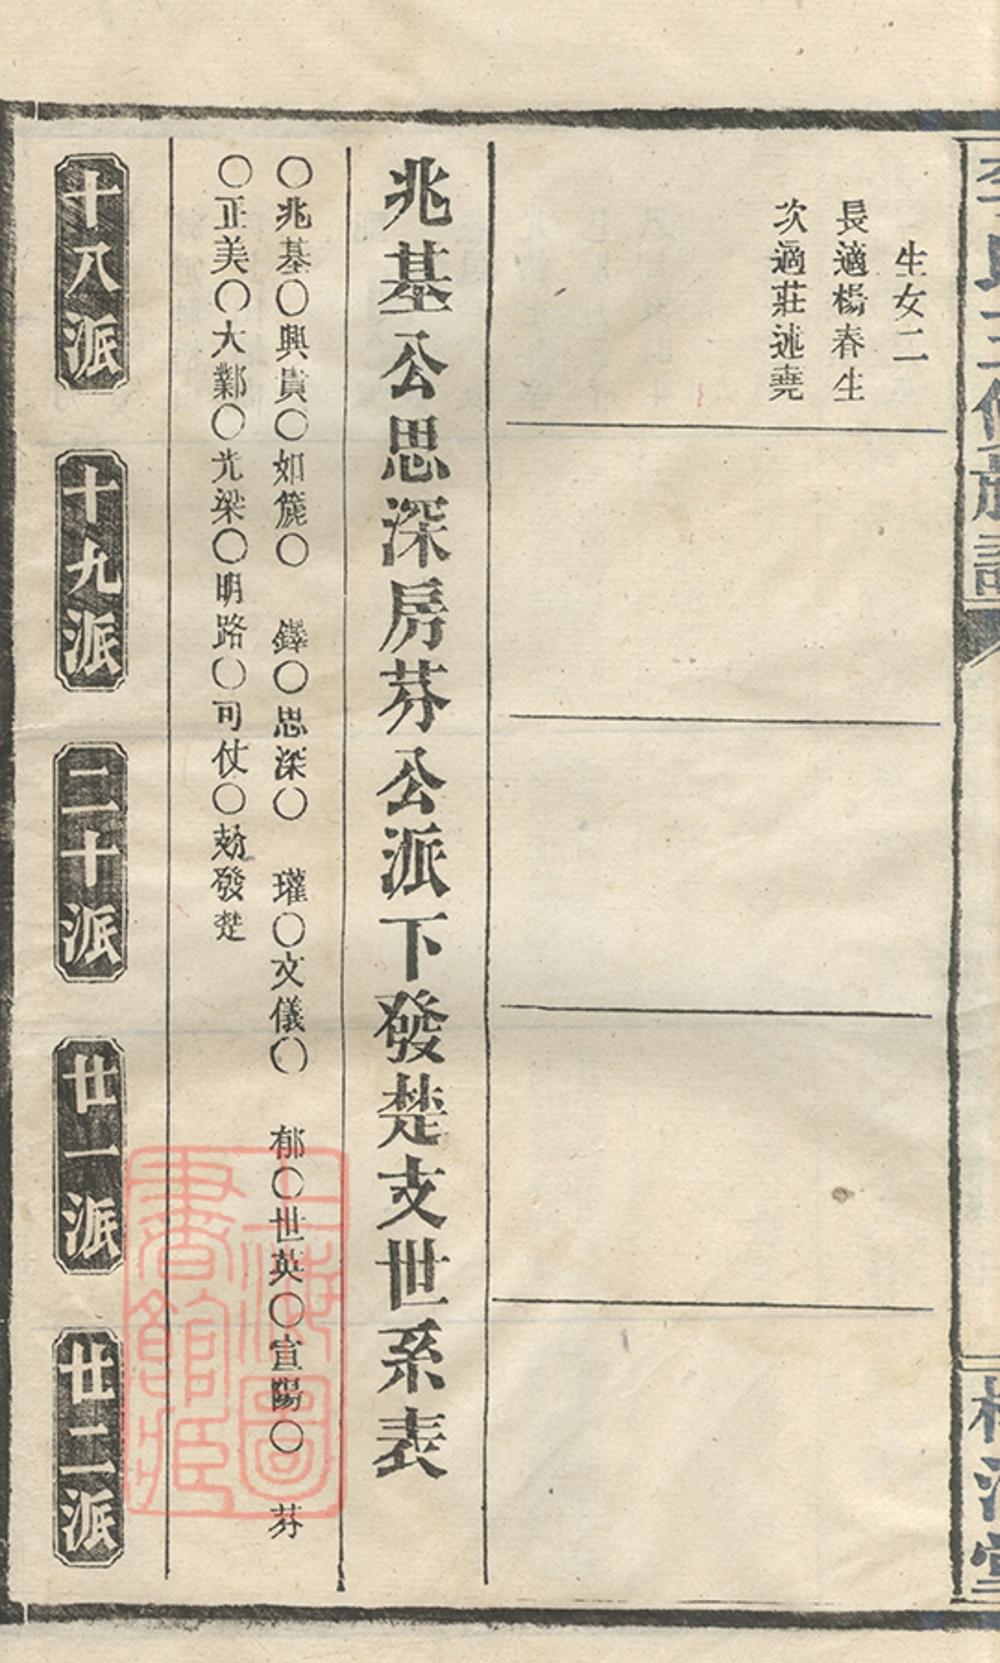 生女二
長適楊春生
次適莊述堯
兆基公思深房芬公派下發楚支世系表
○兆基○興貴○如篪○ 鐸○思深○ 瓘○文儀○ 郁○世英○宣陽○ 芬
○正美○大鄴○光梁○明路○司仗○勑發楚
十八派
十九派
二十派
廿一派
廿二派
上海圖書館藏